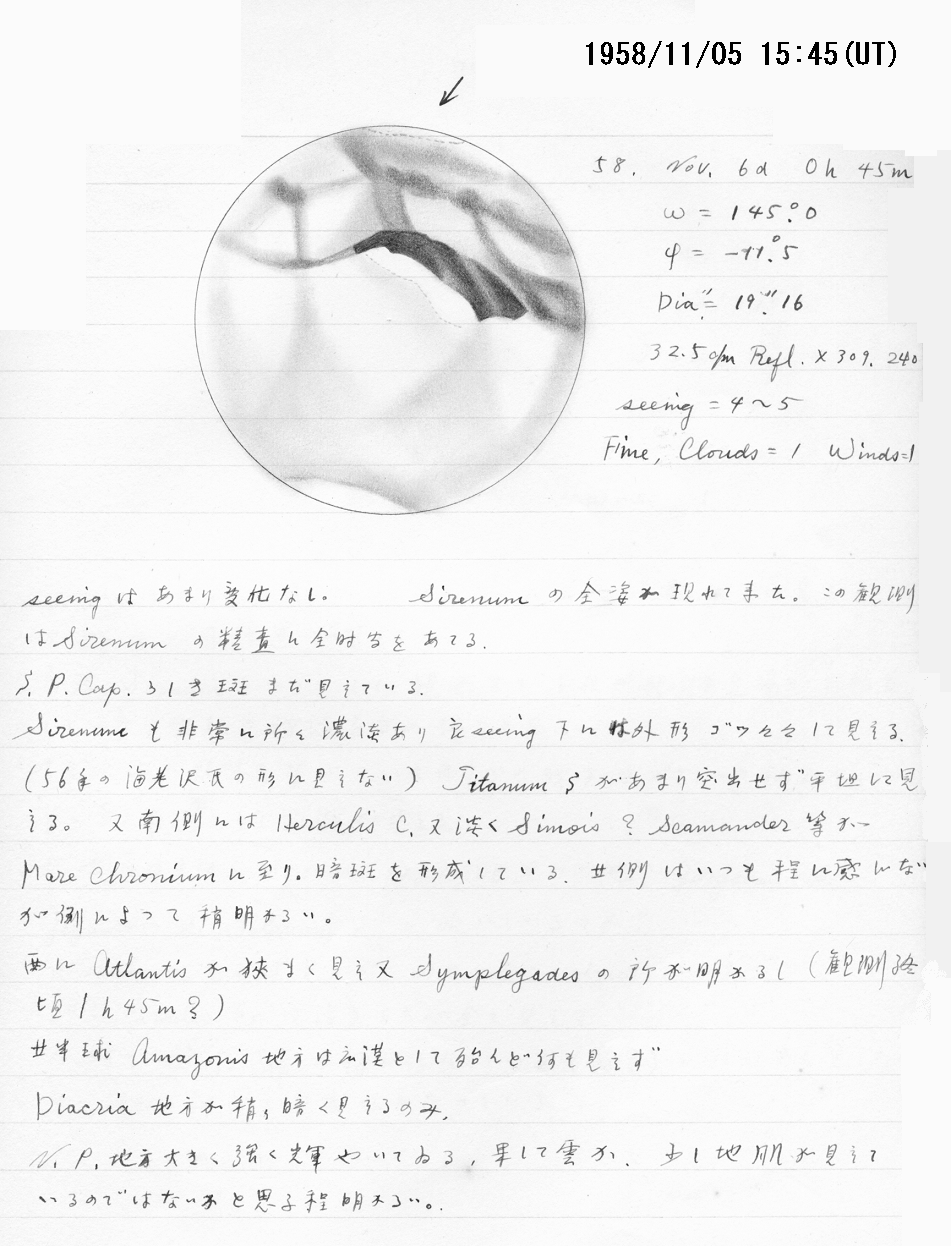 1958/11/05 15:45(UT)
58. Nov. 6d 0h 45m
ω = 145°.0
φ = -11°.5
Dia = 19".16
32.5cm Refl. × 309. 240
seeing = 4~5
Fine, Clouds = 1 Winds=1
seeing はあまり変化なし。 Sirenum の全姿が現れて来た。この観測
は Sirenum の精査に全時間をあてる.
S. P. Cap. らしき斑まだ見えている.
Sirenum も非常に所々濃淡あり 良seeing 下には外形ゴツゴツして見える.
(56年の海老沢氏の形に見えない) Titanum S があまり突出せず平坦に見
える。 又南側には Herculis C. 又淡く Simois ? Scamander 等が
Mare Chronium に至り。暗斑を形成している. 北側はいつも程に感じな
が側によって稍明かるい。
西に Atlantis が狭まく見え又 Symplegades の所が明かるし (観測終
頃 1h45m ころ)
北半球 Amazonis 地方は広漠として殆んど何も見えず
Diacria 地方が稍々暗く見えるのみ.
N. P. 地方大きく強く輝やいてゐる, 果して雲か. 少し地肌が見えて
いるのではないかと思う程明かるい。